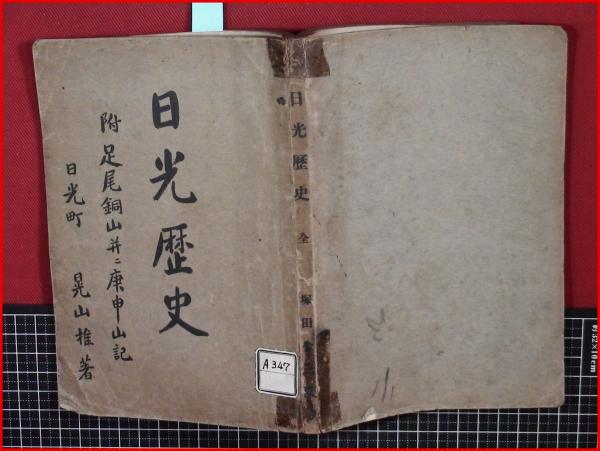 日光歴史
附足尾銅山并ニ庚申山記
日光町 晃山椎著
日光歴史 全 塚田
A347
約32×10cm